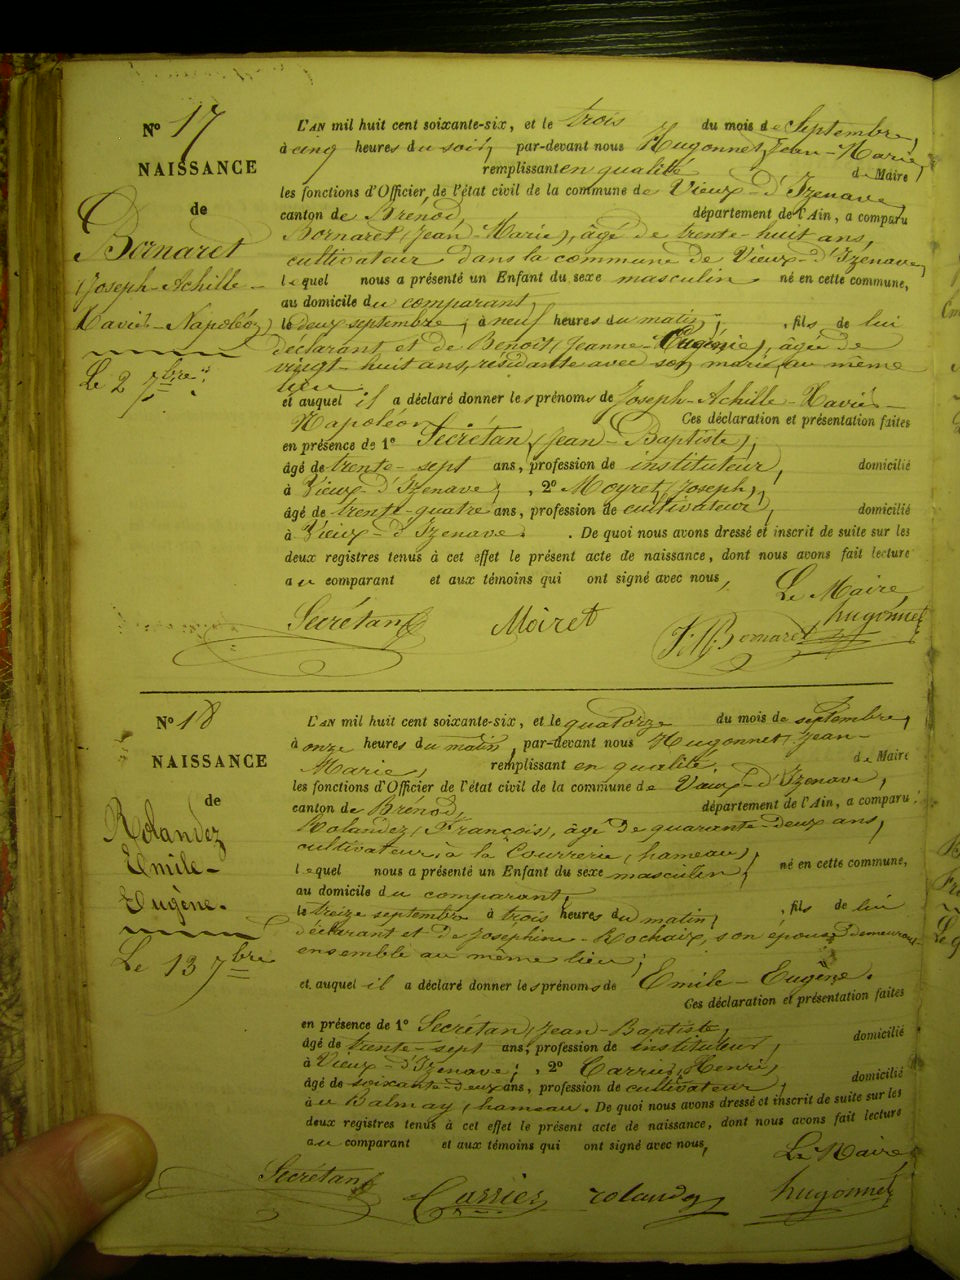 N° 17
NAISSANCE
de
Bornaret
(Joseph-Achille-
Xavier-Napoléon)
Le 2 7bre
L'AN mil huit cent soixante-six, et le trois du mois de Septembre,
à cinq heures du soir, par-devant nous Hugonnet, Jean-Marie,
remplissant en qualité de Maire
les fonctions d'Officier de l'état civil de la commune de Vieux-d'Izenave,
canton de Brénod, département de l'Ain, a comparu
Bornaret (Jean-Marie), âgé de trente-huit ans,
cultivateur dans la commune de Vieux-d'Izenave,
lequel nous a présenté un Enfant du sexe masculin né en cette commune,
au domicile du comparant,
le deux septembre, à neuf heures du matin, fils de lui
déclarant et de Benoit, Jeanne-Eugénie), âgée de
vingt-huit ans, résidante avec son mari, au même
lieu
et auquel il a déclaré donner les prénoms de Joseph-Achille-Xavier-
Napoléon Ces déclaration et présentation faites
en présence de 1° Secrétan, (Jean-Baptiste),
âgé de trente-sept ans, profession de instituteur, domicilié
à Vieux-d'Izenave, , 2° Moyret, (Joseph),
âgé de trente-quatre ans, profession de cultivateur, domicilié
à Vieux-d'Izenave. . De quoi nous avons dressé et inscrit de suite sur les
deux registres tenus à cet effet le présent acte de naissance, dont nous avons fait lecture
au comparant et aux témoins qui ont signé avec nous,
Le Maire,
Secrétan Moiret J. M. Bornaret hugonnet
N° 18
NAISSANCE
de
Rolandez
Emile-
Eugène.
Le 13 7bre
L'AN mil huit cent soixante-six, et le quatorze du mois de septembre,
à onze heures du matin, par-devant nous Hugonnet, Jean-
Marie, remplissant en qualité de Maire
les fonctions d'Officier de l'état civil de la commune de Vieux-d'Izenave,
canton de Brénod, département de l'Ain, a comparu :
Rolandez, (François), âgé de quarante-deux ans,
cultivateur, à la Courrerie, (hameau),
lequel nous a présenté un Enfant du sexe masculin, né en cette commune,
au domicile du comparant,
le treize septembre à trois heures du matin, , fils de lui
déclarant et de Joséphine-Rochaix, son épouse demeurant
ensemble au même lieu;
et auquel il a déclaré donner les prénoms de Emile-Eugène.
Ces déclaration et présentation faites
en présence de 1° Secrétan, Jean-Baptiste,
âgé de trente-sept ans, profession de instituteur, domicilié
à Vieux-d'Izenave; , 2° Carrier, Henri,
âgé de soixante-deux ans, profession de cultivateur, domicilié
au Balmay, hameau. De quoi nous avons dressé et inscrit de suite sur les
deux registres tenus à cet effet le présent acte de naissance, dont nous avons fait lecture
au comparant et aux témoins qui ont signé avec nous,
Le Maire,
Secrétan Carrier rolandez hugonnet